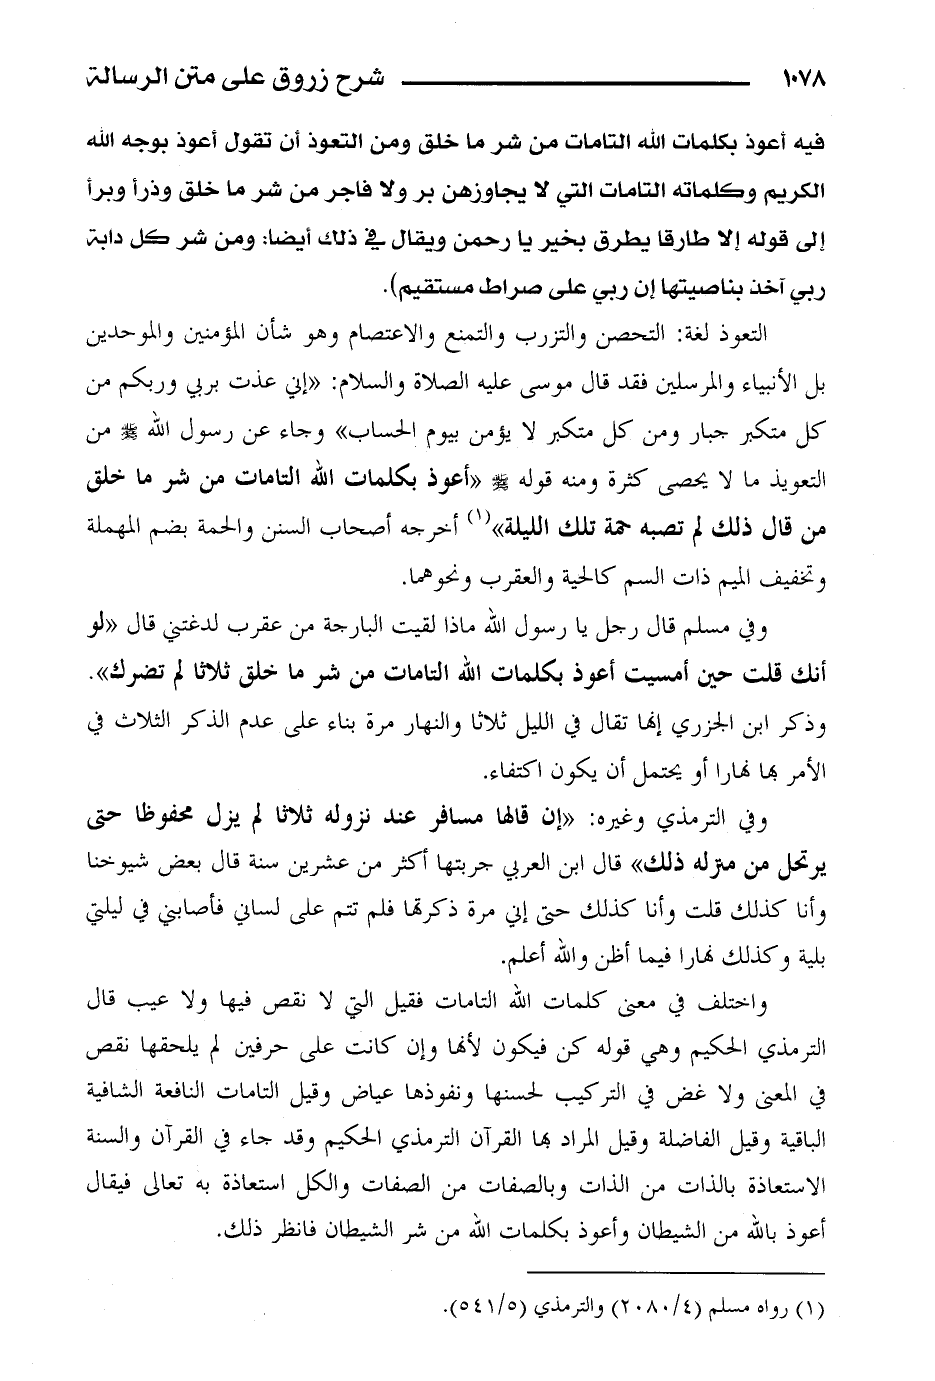 ١٠٧٨ شرح زروق على متن الرسالة
فيه أعوذ بكلمات الله التامات من شر ما خلق ومن التعوذ أن تقول أعوذ بوجه الله
الكريم وكلماته التامات التي لا يجاوزهن بر ولا فاجر من شر ما خلق وذرأ وبرأ
إلى قوله إلا طارقا يطرق بخير يا رحمن ويقال في ذلك أيضا: ومن شر كل دابة
ربي آخذ بناصيتها إن ربي على صراط مستقيم).
التعوذ لغة: التحصن والتزرب والتمنع والاعتصام وهو شأن المؤمنين والموحدين
بل الأنبياء والمرسلين فقد قال موسى عليه الصلاة والسلام: «إني عذت بربي وربكم من
كل متكبر جبار ومن كل متكبر لا يؤمن بيوم الحساب» وجاء عن رسول الله ﷺ من
التعويذ ما لا يحصى كثرة ومنه قوله ﷺ «أعوذ بكلمات الله التامات من شر ما خلق
من قال ذلك لم تصبه حمة تلك الليلة»(١) أخرجه أصحاب السنن والحمة بضم المهملة
وتخفيف الميم ذات السم كالحية والعقرب ونحوهما.
وفي مسلم قال رجل يا رسول الله ماذا لقيت البارحة من عقرب لدغتني قال «لو
أنك قلت حين أمسيت أعوذ بكلمات الله التامات من شر ما خلق ثلاثا لم تضرك».
وذكر ابن الجزري إنها تقال في الليل ثلاثا والنهار مرة بناء على عدم الذكر الثلاث في
الأمر بها نهارا أو يحتمل أن يكون اكتفاء.
وفي الترمذي وغيره: «إن قالها مسافر عند نزوله ثلاثا لم يزل محفوظا حتى
يرتحل من منزله ذلك» قال ابن العربي جربتها أكثر من عشرين سنة قال بعض شيوخنا
وأنا كذلك قلت وأنا كذلك حتى إني مرة ذكرتها فلم تتم على لساني فأصابني في ليلتي
بلية وكذلك نهارا فيما أظن والله أعلم.
واختلف في معنى كلمات الله التامات فقيل التي لا نقص فيها ولا عيب قال
الترمذي الحكيم وهي قوله كن فيكون لأنها وإن كانت على حرفين لم يلحقها نقص
في المعنى ولا غض في التركيب لحسنها ونفوذها عياض وقيل التامات النافعة الشافية
الباقية وقيل الفاضلة وقيل المراد بها القرآن الترمذي الحكيم وقد جاء في القرآن والسنة
الاستعاذة بالذات من الذات وبالصفات من الصفات والكل استعاذة به تعالى فيقال
أعوذ بالله من الشيطان وأعوذ بكلمات الله من شر الشيطان فانظر ذلك.
(١) رواه مسلم (٢٠٨٠/٤) والترمذي (٥٤١/٥).